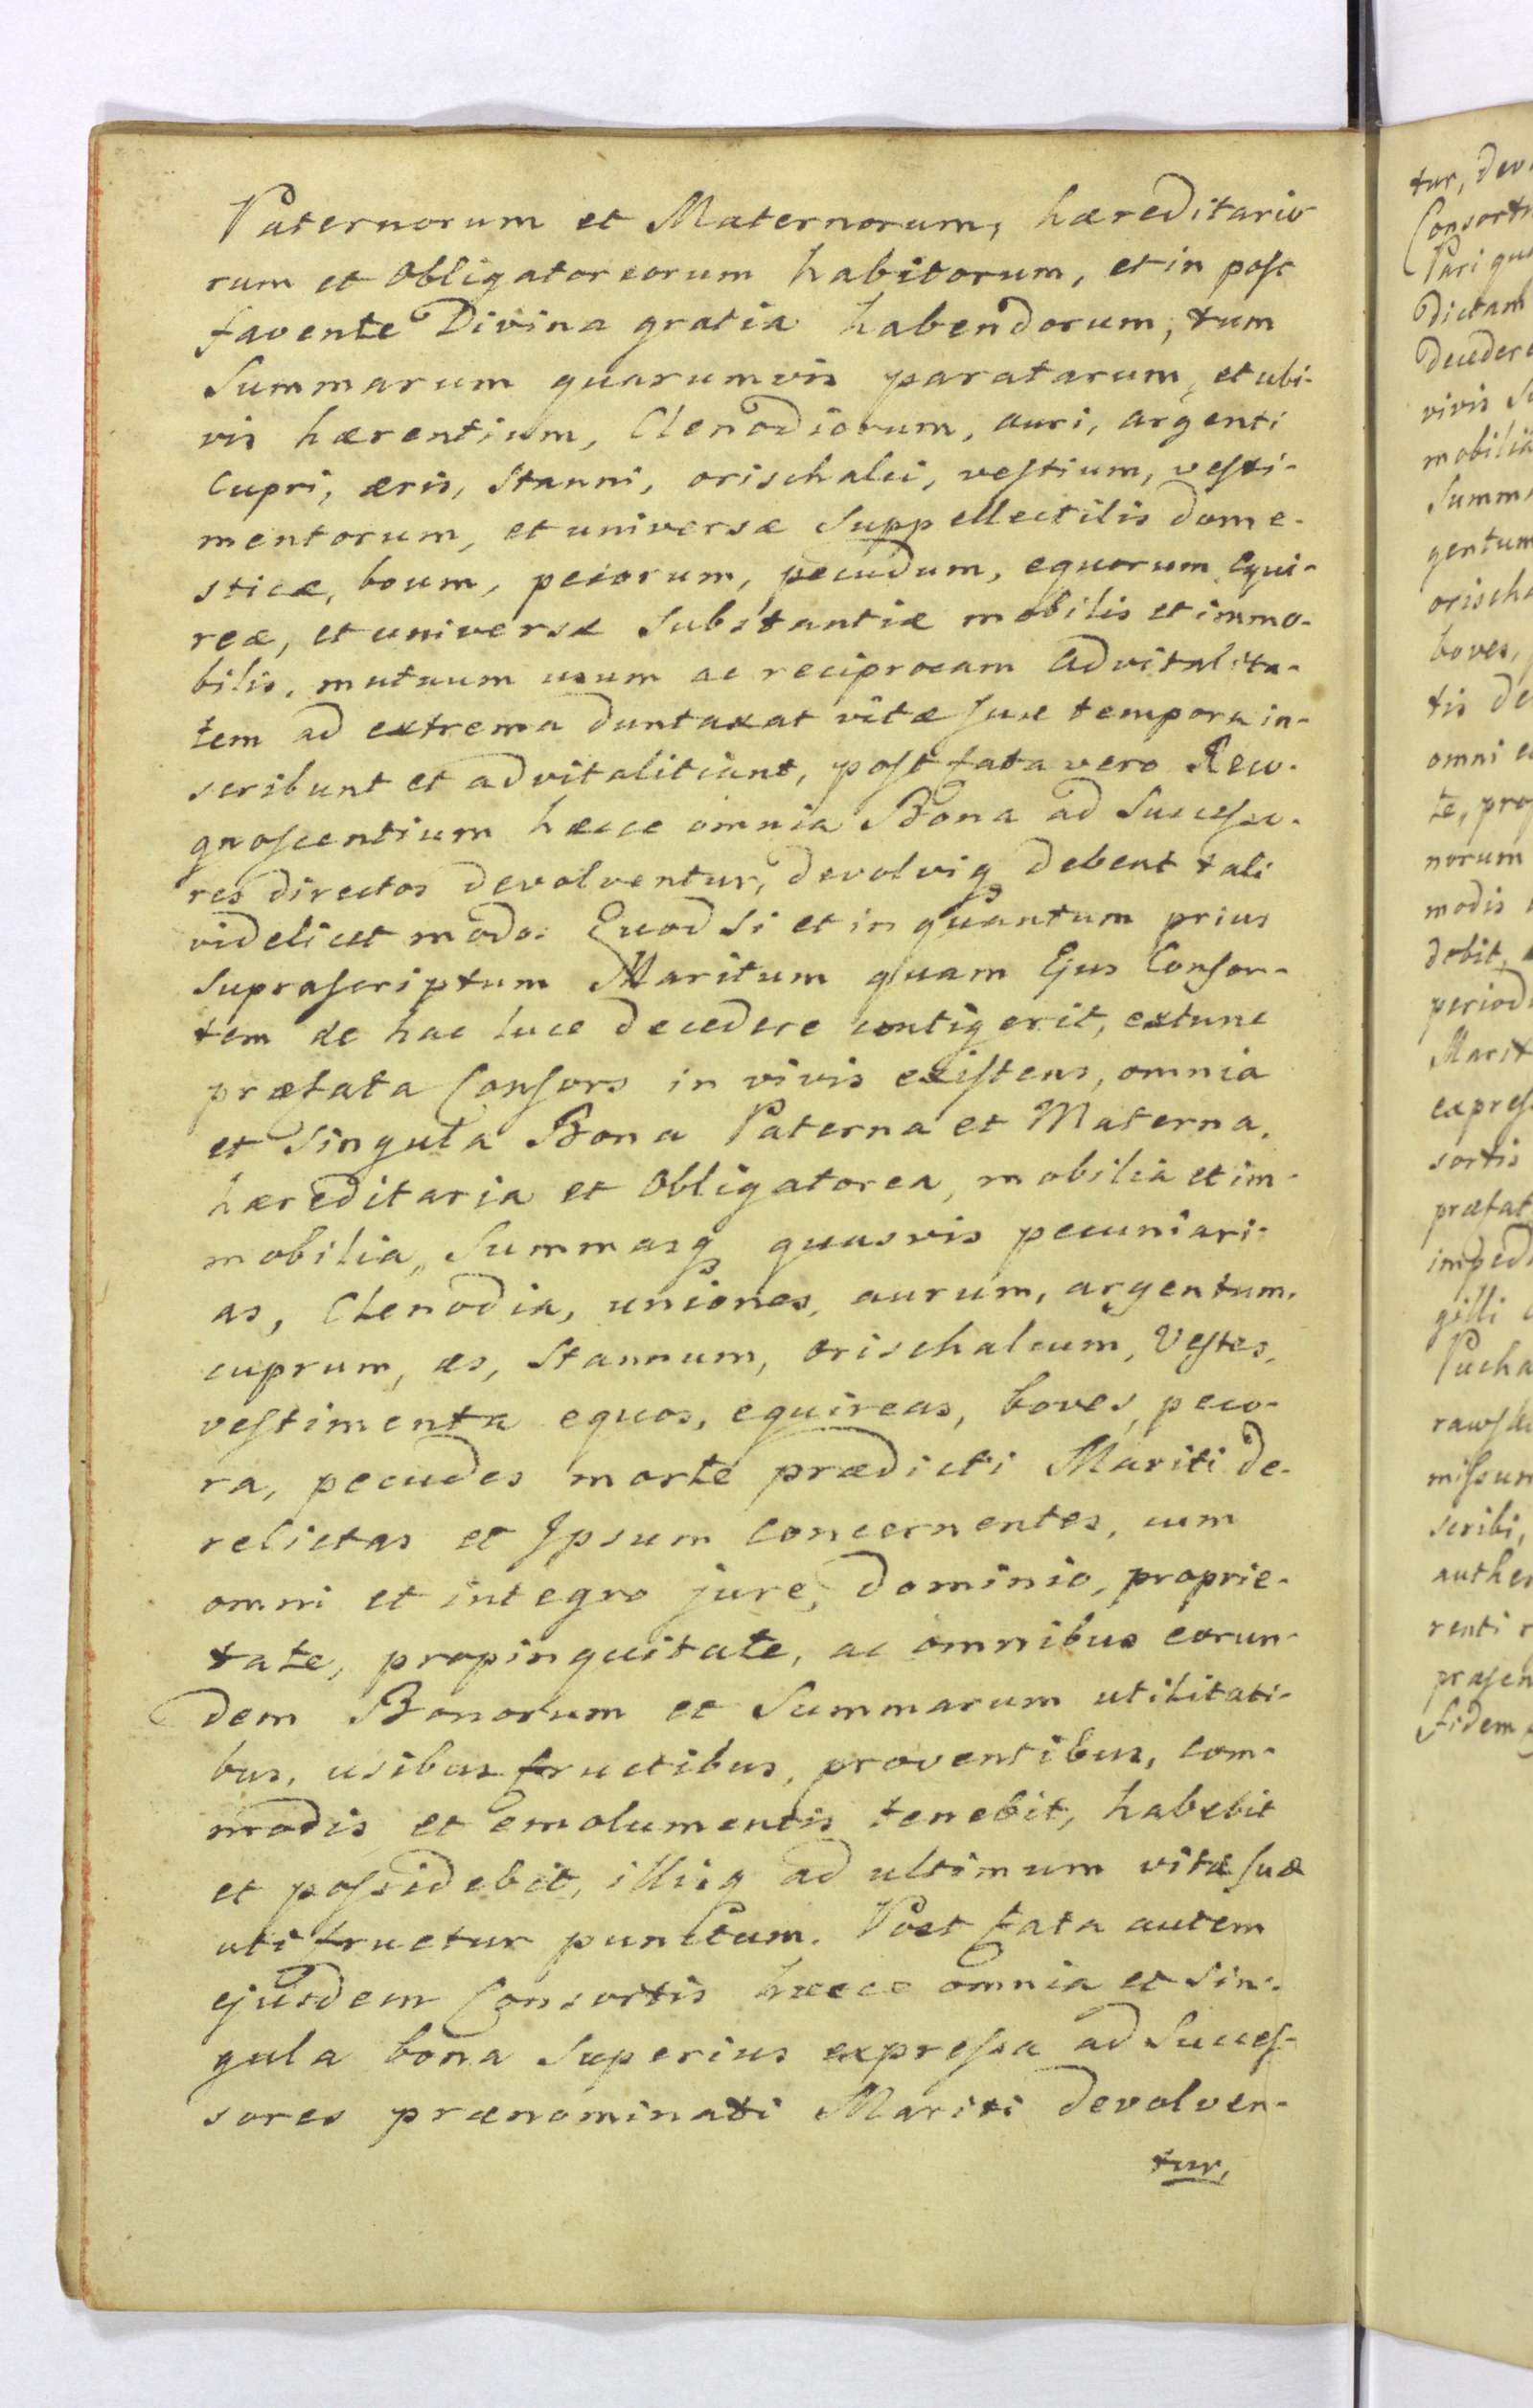 Paternorum et Maternorum, hæreditario
rum et Obligatoreorum habitorum, et in post
favente Divina gratia habendorum, tum
Summarum quarumvis paratarum, et ubi-
vis hærentium, Clenodiorum, auri, argenti
Cupri, æris, Stanni, orischalci, vestium, vesti-
mentorum, et universæ Suppellectilis dome-
sticæ, boum, pecorum, pecudum, equorum Equi-
reæ, et universæ Substantiæ mobilis et immo-
bilis, mutuum usum ac reciprocam Advitalita-
tem ad extrema duntaxat vitæ suæ tempora in-
scribunt et advitalitiant, post fata vero Reco-
gnoscentium hæcce omnia Bona ad Successo-
res directos devolventur, devolviq debent tali
videlicet modo: Quod Si et in quantum prius
Suprascriptum Maritum quam Ejus Consor-
tem de hac luce decedere contigerit, extunc
præfata Consors in vivis existens, omnia
et Singula Bona Paterna et Materna,
hæreditaria et Obligatorea, mobilia et im-
mobilia, Summasq quasvis pecuniari-
as, Clenodia, uniones, aurum, argentum,
cuprum, æs, Stannum, orischalcum, Vestes,
vestimenta equos, equireas, boves, peco-
ra, pecudes morte prædicti Mariti de-
relictas et Ipsum Concernentes, cum
omni et integro jure, dominio, proprie-
tate, propinquitate, ac omnibus eorun-
dem Bonorum et Summarum utilitati-
bus, usibus fructibus, proventibus, com-
modis et emolumentis tenebit, habebit
et possidebit, illisq ad ultimum vitæ suæ
uti fruetur punctum. Post fata autem
ejusdem Consortis hæcce omnia et Sin-
gula bona Superius expressa ad Succes-
sores prænominati Mariti devolven-
tur,
tur,
Consort
Pari
dictam
vivis
mobilia
Summ
gentum
orischa
boves,
tis de
omni
te, pro
norum
modis
debit,
period
Marit
expres
sortis
præfat
imped
gilli
Pucha
missum
scribi,
authen
renti
præsen
fidem